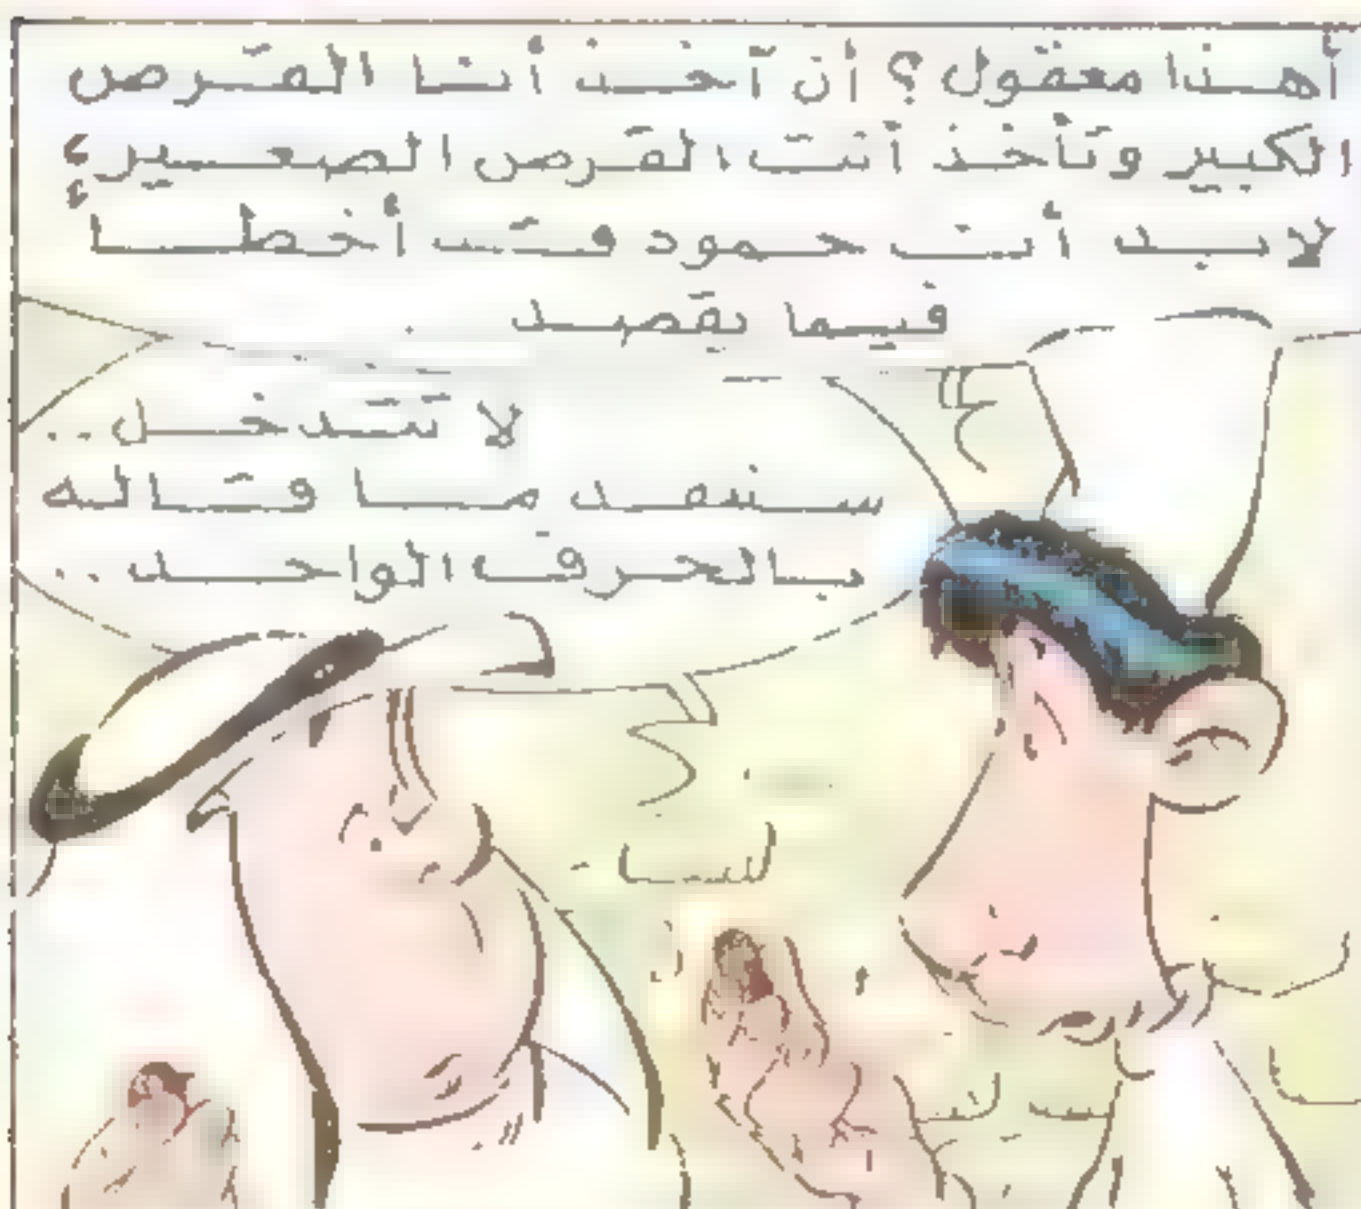 أهذا معقول؟ أن آخذ أنا القرص
الكبير وتأخذ أنت القرص الصغير؟
لابد أن حمود قد أخطأ
فيما يقصد
لا تتدخل..
سننفذ ما قاله
بالحرف الواحد..